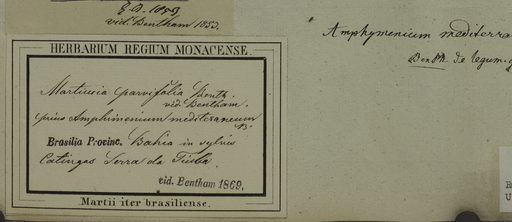 vid. Bentham 1853.
HERBARIUM REGIUM MONACENSE.
Martiusia parvifolia Benth.
vid. Bentham.
prius Amphimenium mediteraneum
Brasilia Provinc. Bahia in sylvis
Catingas Serra da Tiuba.
vid. Bentham 1869.
Martii iter brasiliense.
Amphymenium mediterra
Benth. de legum. g